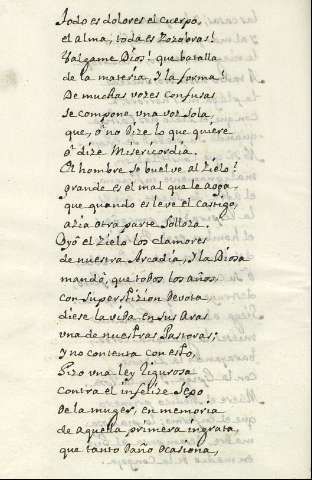 Todo es dolores el cuerpo,
el alma, toda es Zozobras!
Valgame Dios! que batalla
de la materia, y la forma!
De muchas vozes confusas
se compone vna voz sola
que, ò no dize lo que quiere
ò dize Misericordia.
El hombre se buelve al Zielo!
grande es el mal que le aoga
que quando es leve el castigo,
azia otra parte solloza.
Oyó el Zielo los clamores
de nuestra Arcadia, y la Diosa
mandò, que todos los años,
con superstizion devota
diese la vida en sus Aras
vna de nuestras Pastoras;
y no contenta con esto,
hizo vna ley rigurosa
contra el infelize sexo
de la muger, en memoria
de aquella primera ingrata,
que tanto daño ocasiona,